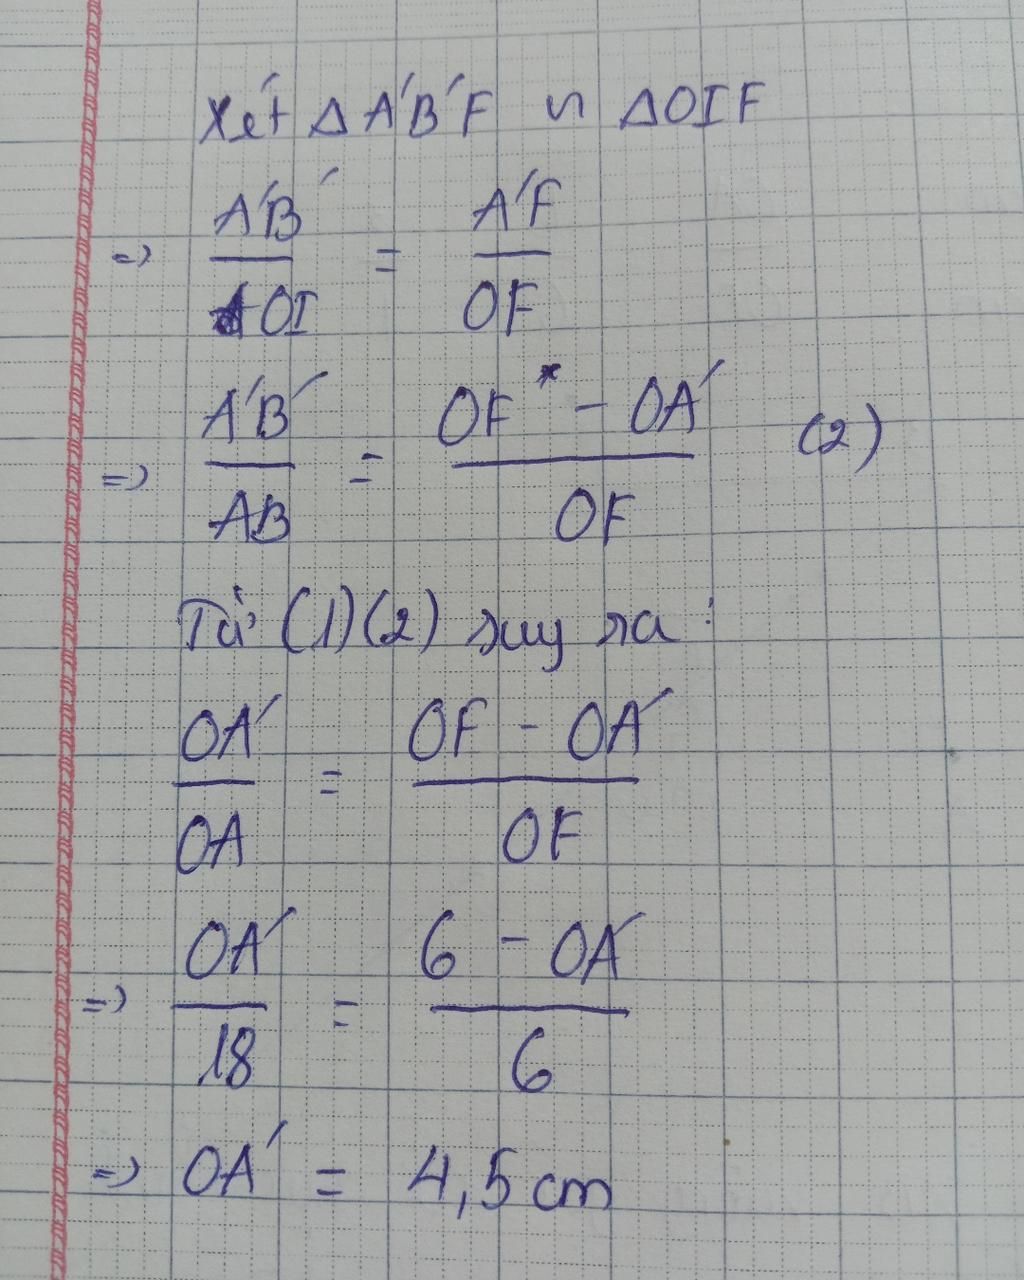 Xét Δ A'B'F ∽ ΔOIF
=> A'B' / OI = A'F / OF
=> A'B' / AB = (OF - OA') / OF (2)
Từ (1)(2) suy ra :
OA' / OA = (OF - OA') / OF
=> OA' / 18 = (6 - OA') / 6
=> OA' = 4,5 cm